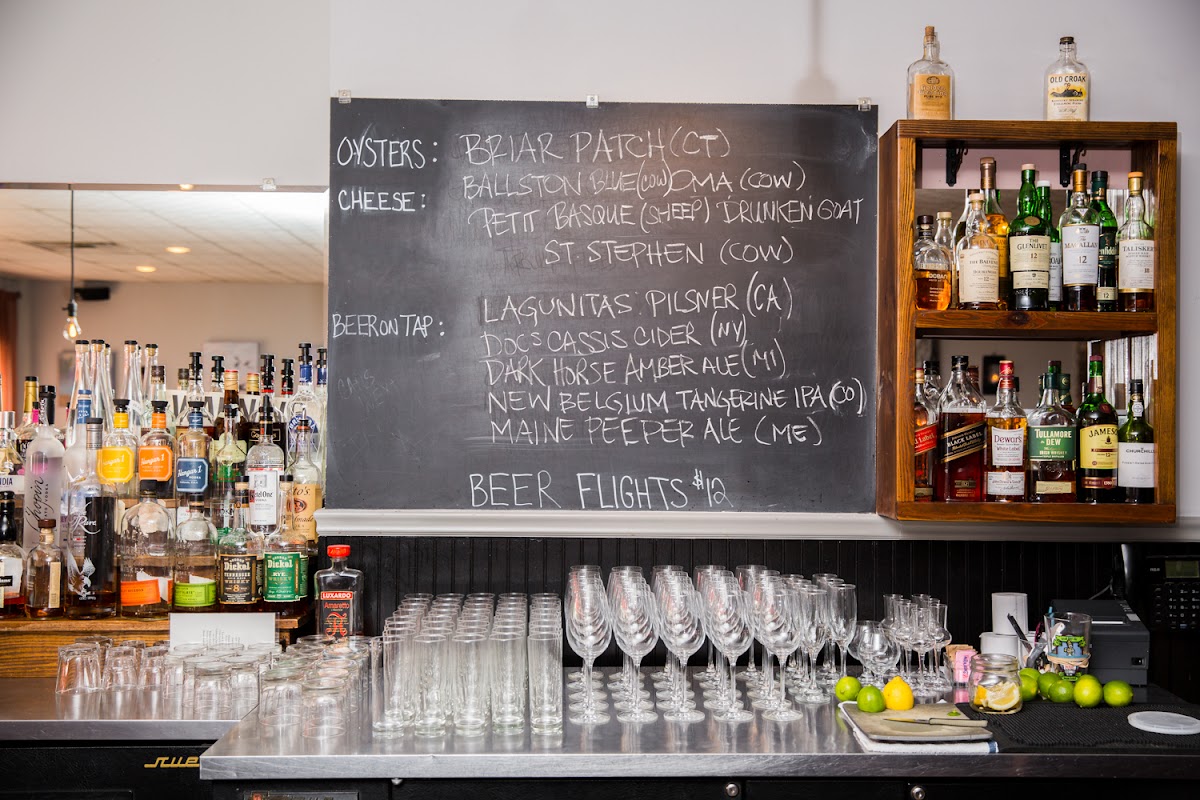 OYSTERS: BRIAR PATCH (CT)
CHEESE: BALLSTON BLUE (COW) OMA (COW)
PETIT BASQUE (SHEEP) DRUNKEN GOAT
ST. STEPHEN (COW)
BEER ON TAP: LAGUNITAS PILSNER (CA)
DOC'S CASSIS CIDER (NY)
DARK HORSE AMBER ALE (MI)
NEW BELGIUM TANGERINE IPA (CO)
MAINE PEEPER ALE (ME)
BEER FLIGHTS $12
OLD CROAK
THE GLENLIVET
12
MACALLAN
12
TALISKER
BLACK LABEL
Dewar's
White Label
TULLAMORE
DEW
JAMES
Hangar 1
Hangar 1
Hangar 1
Ketel One
Dickel
8
Dickel
RYE
LUXARDO
Amaretto
True